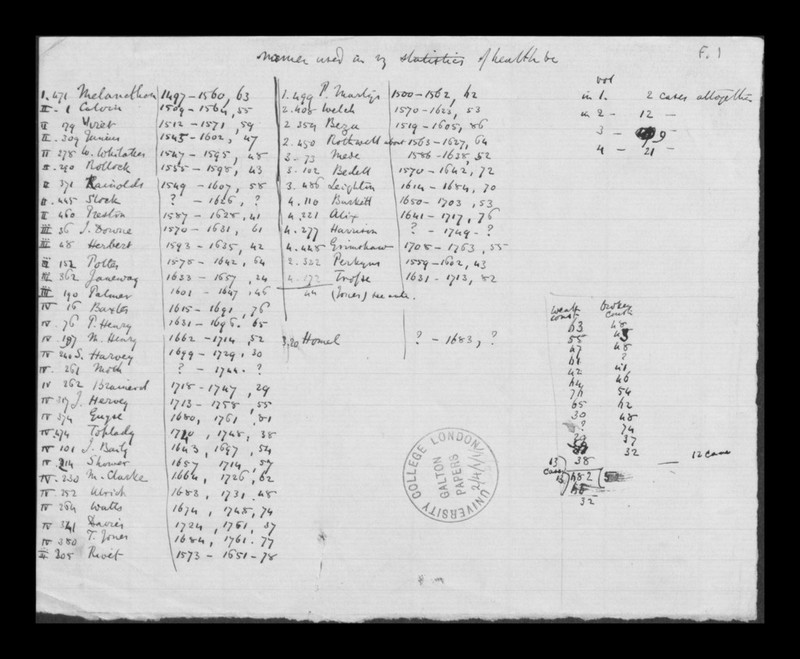 names used as statistics of health be
F. 1
1. 471 Melancthon 1497-1560, 63
II. 1 Calvin 1509-1564, 55
II 179 Viret 1512-1571, 59
II. 309 Junius 1545-1602, 47
II 278 W. Whitaker 1547-1595, 48
II. 290 Rollock 1555-1598, 43
II 371 Rainolds 1549-1607, 58
II. 445 Stock ? - 1626, ?
II 460 Preston 1587-1628, 41
III 36 J. Downe 1570-1631, 61
III 48 Herbert 1593-1635, 42
III 152 Potter 1578-1642, 64
III 362 Janeway 1633-1657, 24
III 190 Palmer 1601-1647, 46
IV 16 Baxter 1615-1691, 76
IV. 76 P. Henry 1631-1696. 65
IV 197 M. Henry 1662-1714, 52
IV 240 S. Harvey 1699-1729, 30
IV. 261 Moth ? - 1744. ?
IV 262 Brainerd 1718-1747, 29
IV 317 J. Hervey 1713-1758, 55
IV 374 Guyse 1680, 1761, 81
IV 474 Toplady 1740, 1748, 38
IV 101 J. Baily 1643, 1697, 54
IV 214 Shower 1657 1714, 57
IV. 230 M. Clarke 1664, 1726, 62
IV 252 Ulrich 1683, 1731. 48
IV 264 Watts 1674, 1748, 74
IV 341 Davies 1724, 1761, 37
IV 380 T. Jones 1684, 1761. 77
II 305 Rivet 1573-1651-78
1. 499 P. Martyr 1500-1562, 62
2. 408 Welch 1570-1623, 53
2 354 Beza 1519-1605, 86
2. 450 Rothwell about 1563-1627, 64
3-73 Mede 1586-1638, 52
3. 102 Bedell 1570-1642, 72
3. 486 Leighton 1614-1684, 70
4. 110 Burkett 1650-1703, 53
4. 221 Alix 1641-1717, 76
4. 277 Harrison ? - 1749-?
4. 448 Grimshaw 1708-1763, 55
2. 332 Perkyns 1559-1602, 43
4. 172 Trosse 1631-1713, 82
44 (Jones) see
3,20 Homel ? - 1683, ?
vol
in 1. 2 cases altogether
in 2- 12 -
3 - 9 -
4 - 21 -
weak const broken const
63 48
55 43
47 48
41 ?
42 41
64 46
76 54
65 62
30 48
? 74
37
32
12 case
13 cases 38
48.2
32
UNIVERSITY COLLEGE LONDON
GALTON PAPERS